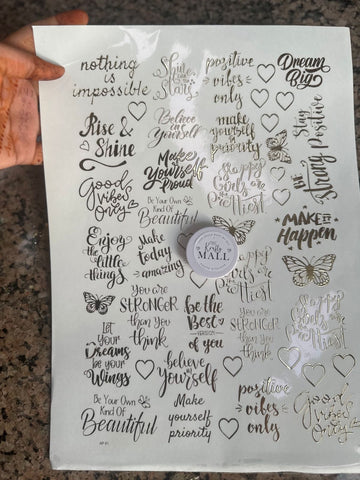 nothing
is
impossible
Shine
like the
Stars
positive
vibes
only
Dream
Big
Rise &
Shine
Believe
in
Yourself
make
yourself
a
priority
Stay
Strong
Be
Positive
Good
vibes
Only
Make
Yourself
Proud
Happy
Girls
are the
Prettiest
Be Your Own
Kind Of
Beautiful
MAKE IT
Happen
Enjoy
the little
things
Make
today
amazing
Kraftly
MALL
Happy
Girls
are the
Prettiest
you are
STRONGER
than you
think
be the
Best
VERSION
of you
you are
STRONGER
than you
think
Happy
Girls
are the
Prettiest
let
your
Dreams
be your
Wings
believe
in
Yourself
Be Your Own
Kind Of
Beautiful
Make
yourself
a
priority
positive
vibes
only
Good
vibes
Only